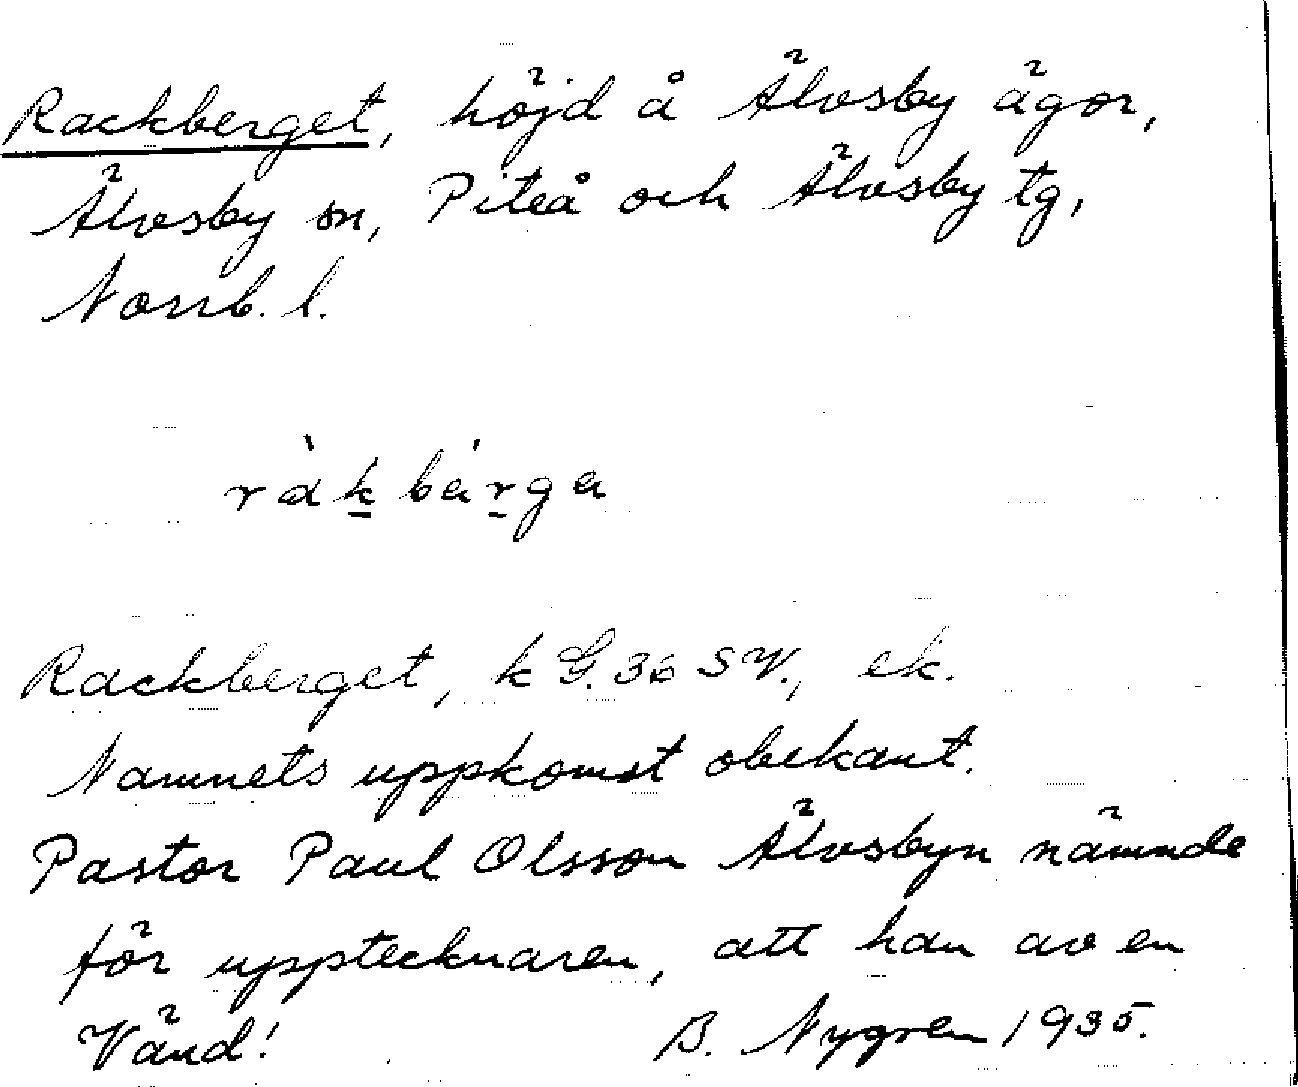 Rackberget, höjd å Älvsby ägor,
Älvsby sn, Piteå och Älvsby tg,
Norrb. l.
ràkbárga
Rackberget, k G. 36 SV., ek.
Namnets uppkomst obekant.
Pastor Paul Olsson Älvsbyn nämnde
för upptecknaren, att han av en
Vänd! B. Nygren 1935.